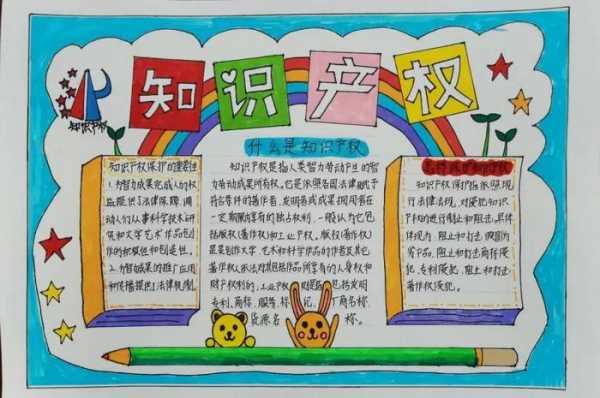 知识产权
知识产权
什么是知识产权
知识产权保护的重要性
1.为智力成果完成人的权
益提供了法律保障,调
动人们从事科学技术研
究和文学艺术作品创
作的积极性和创造性。
2.为智力成果的推广应用
和传播提供了法律机制
知识产权是指人类智力劳动产生的智
力劳动成果所有权。它是依照各国法律赋予
符合条件的著作者、发明者或成果拥有者在
一定期限内享有的独占权利,一般认为它包
括版权(著作权)和工业产权。版权(著作权)
是指创作文学、艺术和科学作品的作者及其他
著作权人依法对其作品所享有的人身权和
财产权利的,工业产权 包括发明
专利、商标、服务标 记、厂商名称、
货源名 称。
知识产权
知识产权保护指依照现
行法律法规,对侵犯知识
产权的进行制止和阻击,具体
体现为:阻止和打击假冒伪
劣产品,阻止和打击商标侵
犯、专利侵犯,阻止和打击
著作权侵犯。